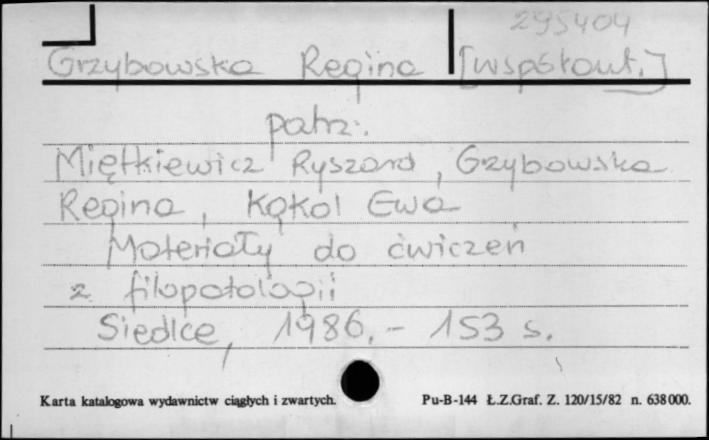 295404
Grzybowska Regina [współaut.]
patrz:
Miętkiewicz Ryszard, Grzybowska
Regina, Kąkol Ewa
Materiały do ćwiczeń
z fitopatologii
Siedlce, 1986. - 153 s.
Karta katalogowa wydawnictw ciągłych i zwartych. Pu-B-144 Ł.Z.Graf. Z. 120/15/82 n. 638000.